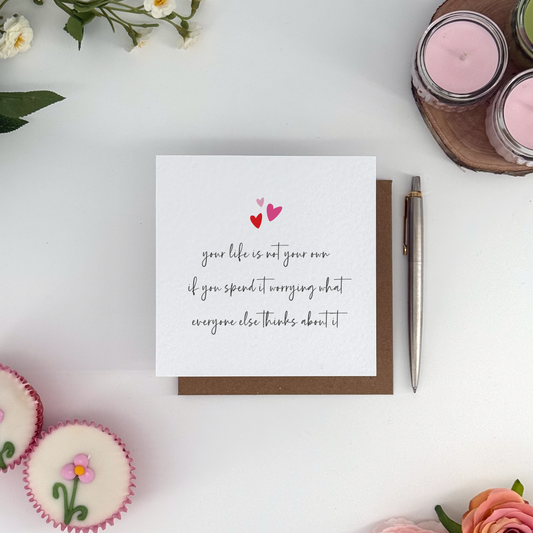 your life is not your own
if you spend it worrying what
everyone else thinks about it